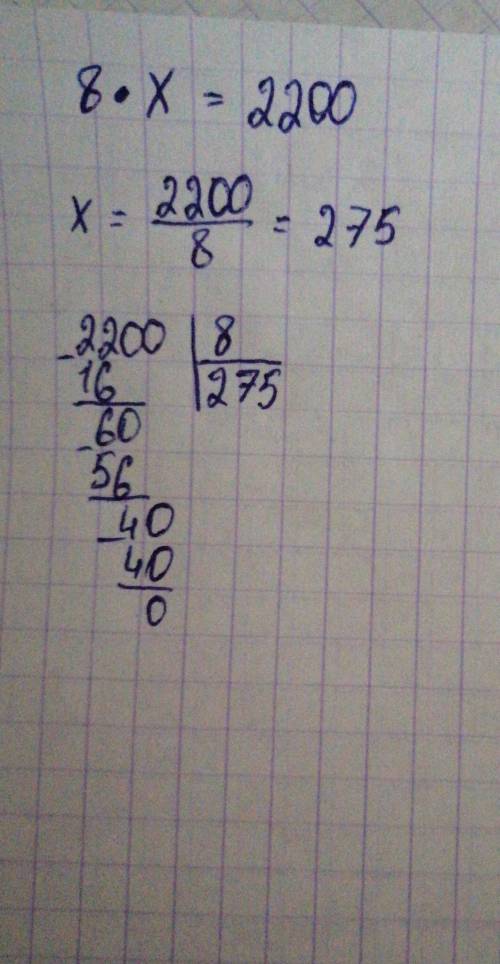 8 · x = 2200
x = 2200/8 = 275
-2200 | 8
16 | 275
-60
56
-40
40
0